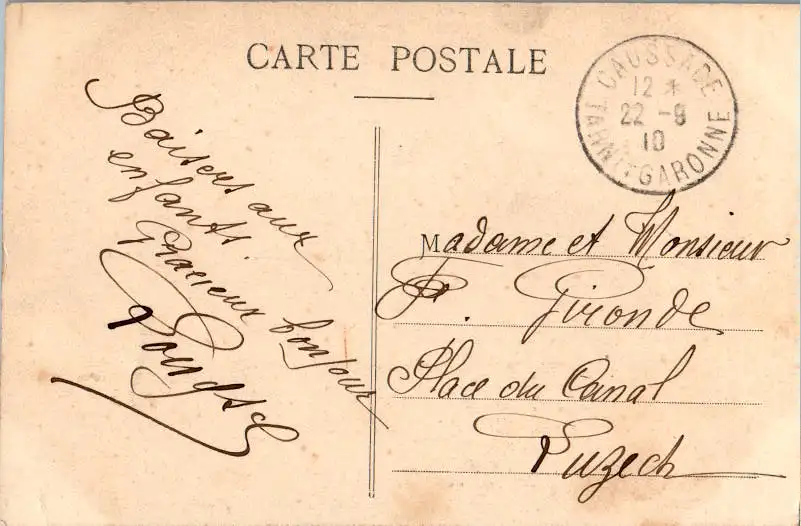 CARTE POSTALE
CAUSSADE
12 *
22 - 9
10
TARN-ET-GARONNE
Baisers aux
enfants.
Gracieux bonjour
Madame et Monsieur
P. Gironde
Place du Canal
Luzech